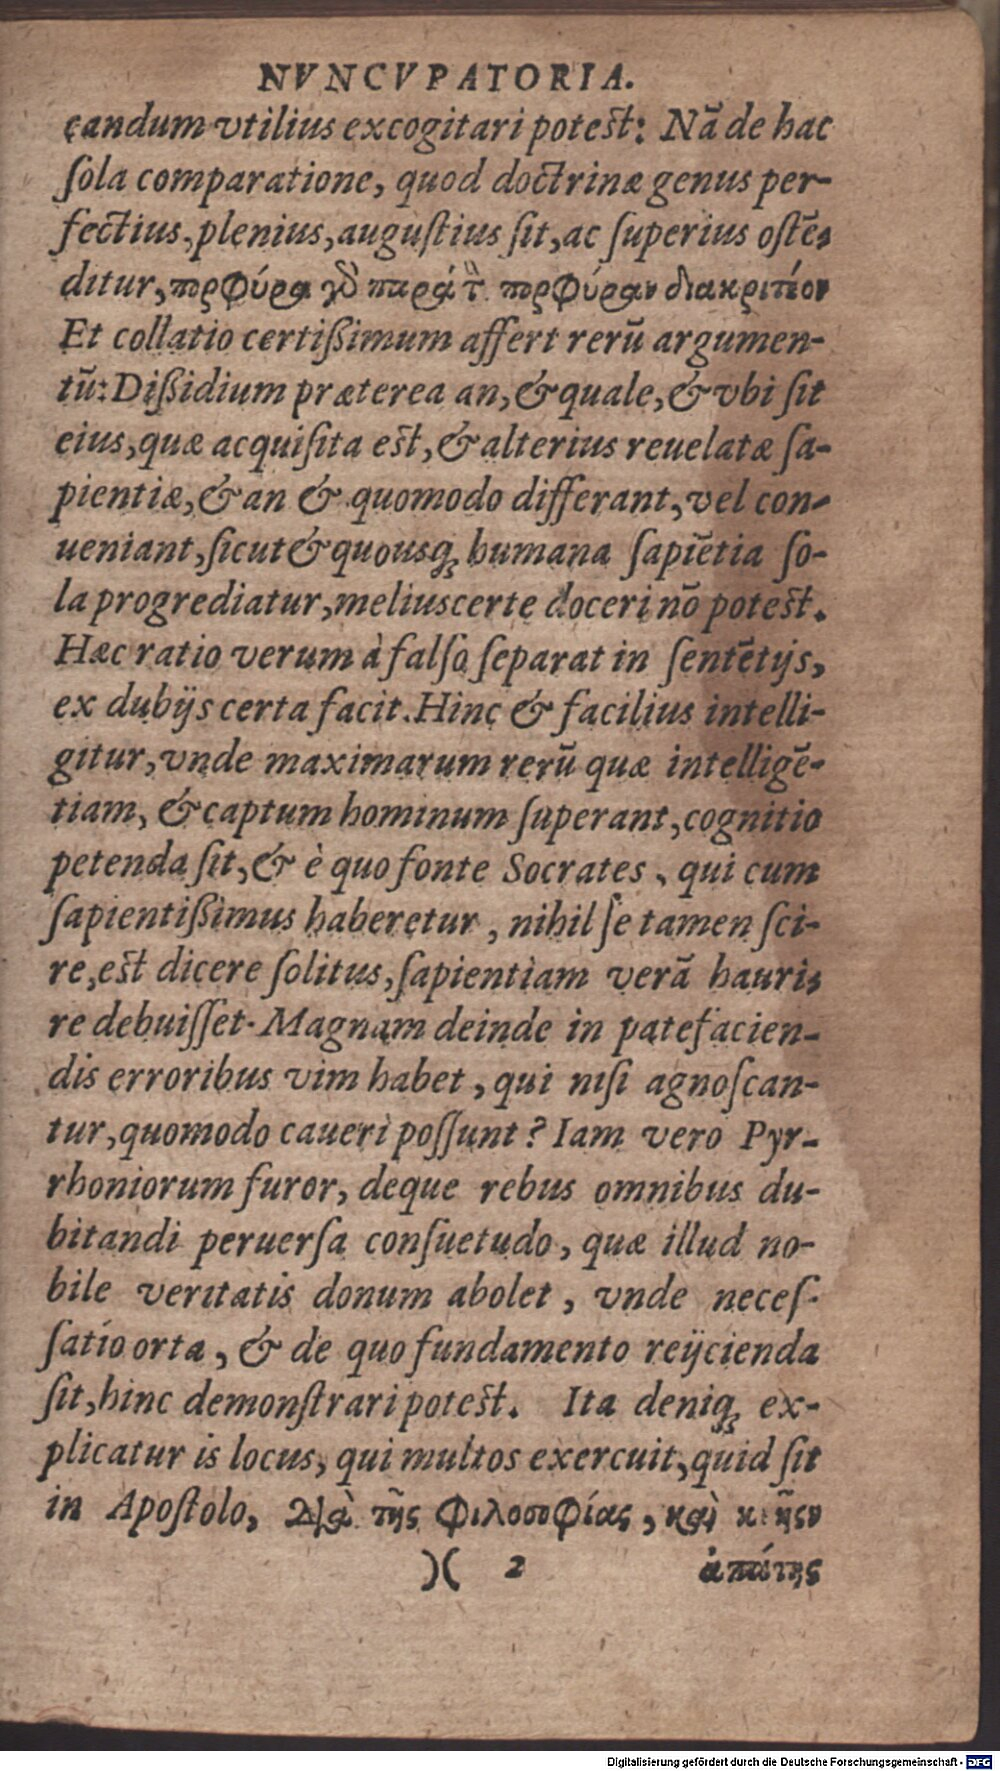 NVNCVPATORIA.
candum vtilius excogitari potest: Nā de hac
ſola comparatione, quod doctrinæ genus per-
fectius, plenius, auguſtius ſit, ac ſuperius oſtē-
ditur, πορφύρα γὸ παρὰ τ̀ πορφύραν διακριτέον
Et collatio certißimum affert rerū argumen-
tū: Dißidium præterea an, & quale, & vbi ſit
eius, quæ acquiſita est, & alterius reuelatæ ſa-
pientiæ, & an & quomodo differant, vel con-
ueniant, ſicut & quousq; humana ſapiētia ſo-
la progrediatur, melius certe doceri nō potest.
Hæc ratio verum à falſo ſeparat in ſentētijs,
ex dubijs certa facit. Hinc & facilius intelli-
gitur, vnde maximarum rerū quæ intelligē-
tiam, & captum hominum ſuperant, cognitio
petenda ſit, & è quo fonte Socrates, qui cum
ſapientißimus haberetur, nihil ſe tamen ſci-
re, est dicere ſolitus, ſapientiam verā hauri-
re debuiſſet. Magnam deinde in patefacien-
dis erroribus vim habet, qui niſi agnoſcan-
tur, quomodo caueri poſſunt? Iam vero Pyr-
rhoniorum furor, deque rebus omnibus du-
bitandi peruerſa conſuetudo, quæ illud no-
bile veritatis donum abolet, vnde neceſ-
ſatio orta, & de quo fundamento reijcienda
ſit, hinc demonſtrari potest. Ita deniq; ex-
plicatur is locus, qui multos exercuit, quid ſit
in Apoſtolo, Διὰ τῆς φιλοσοφίας, καὶ κενῆς
)( 2 ἀπάτης